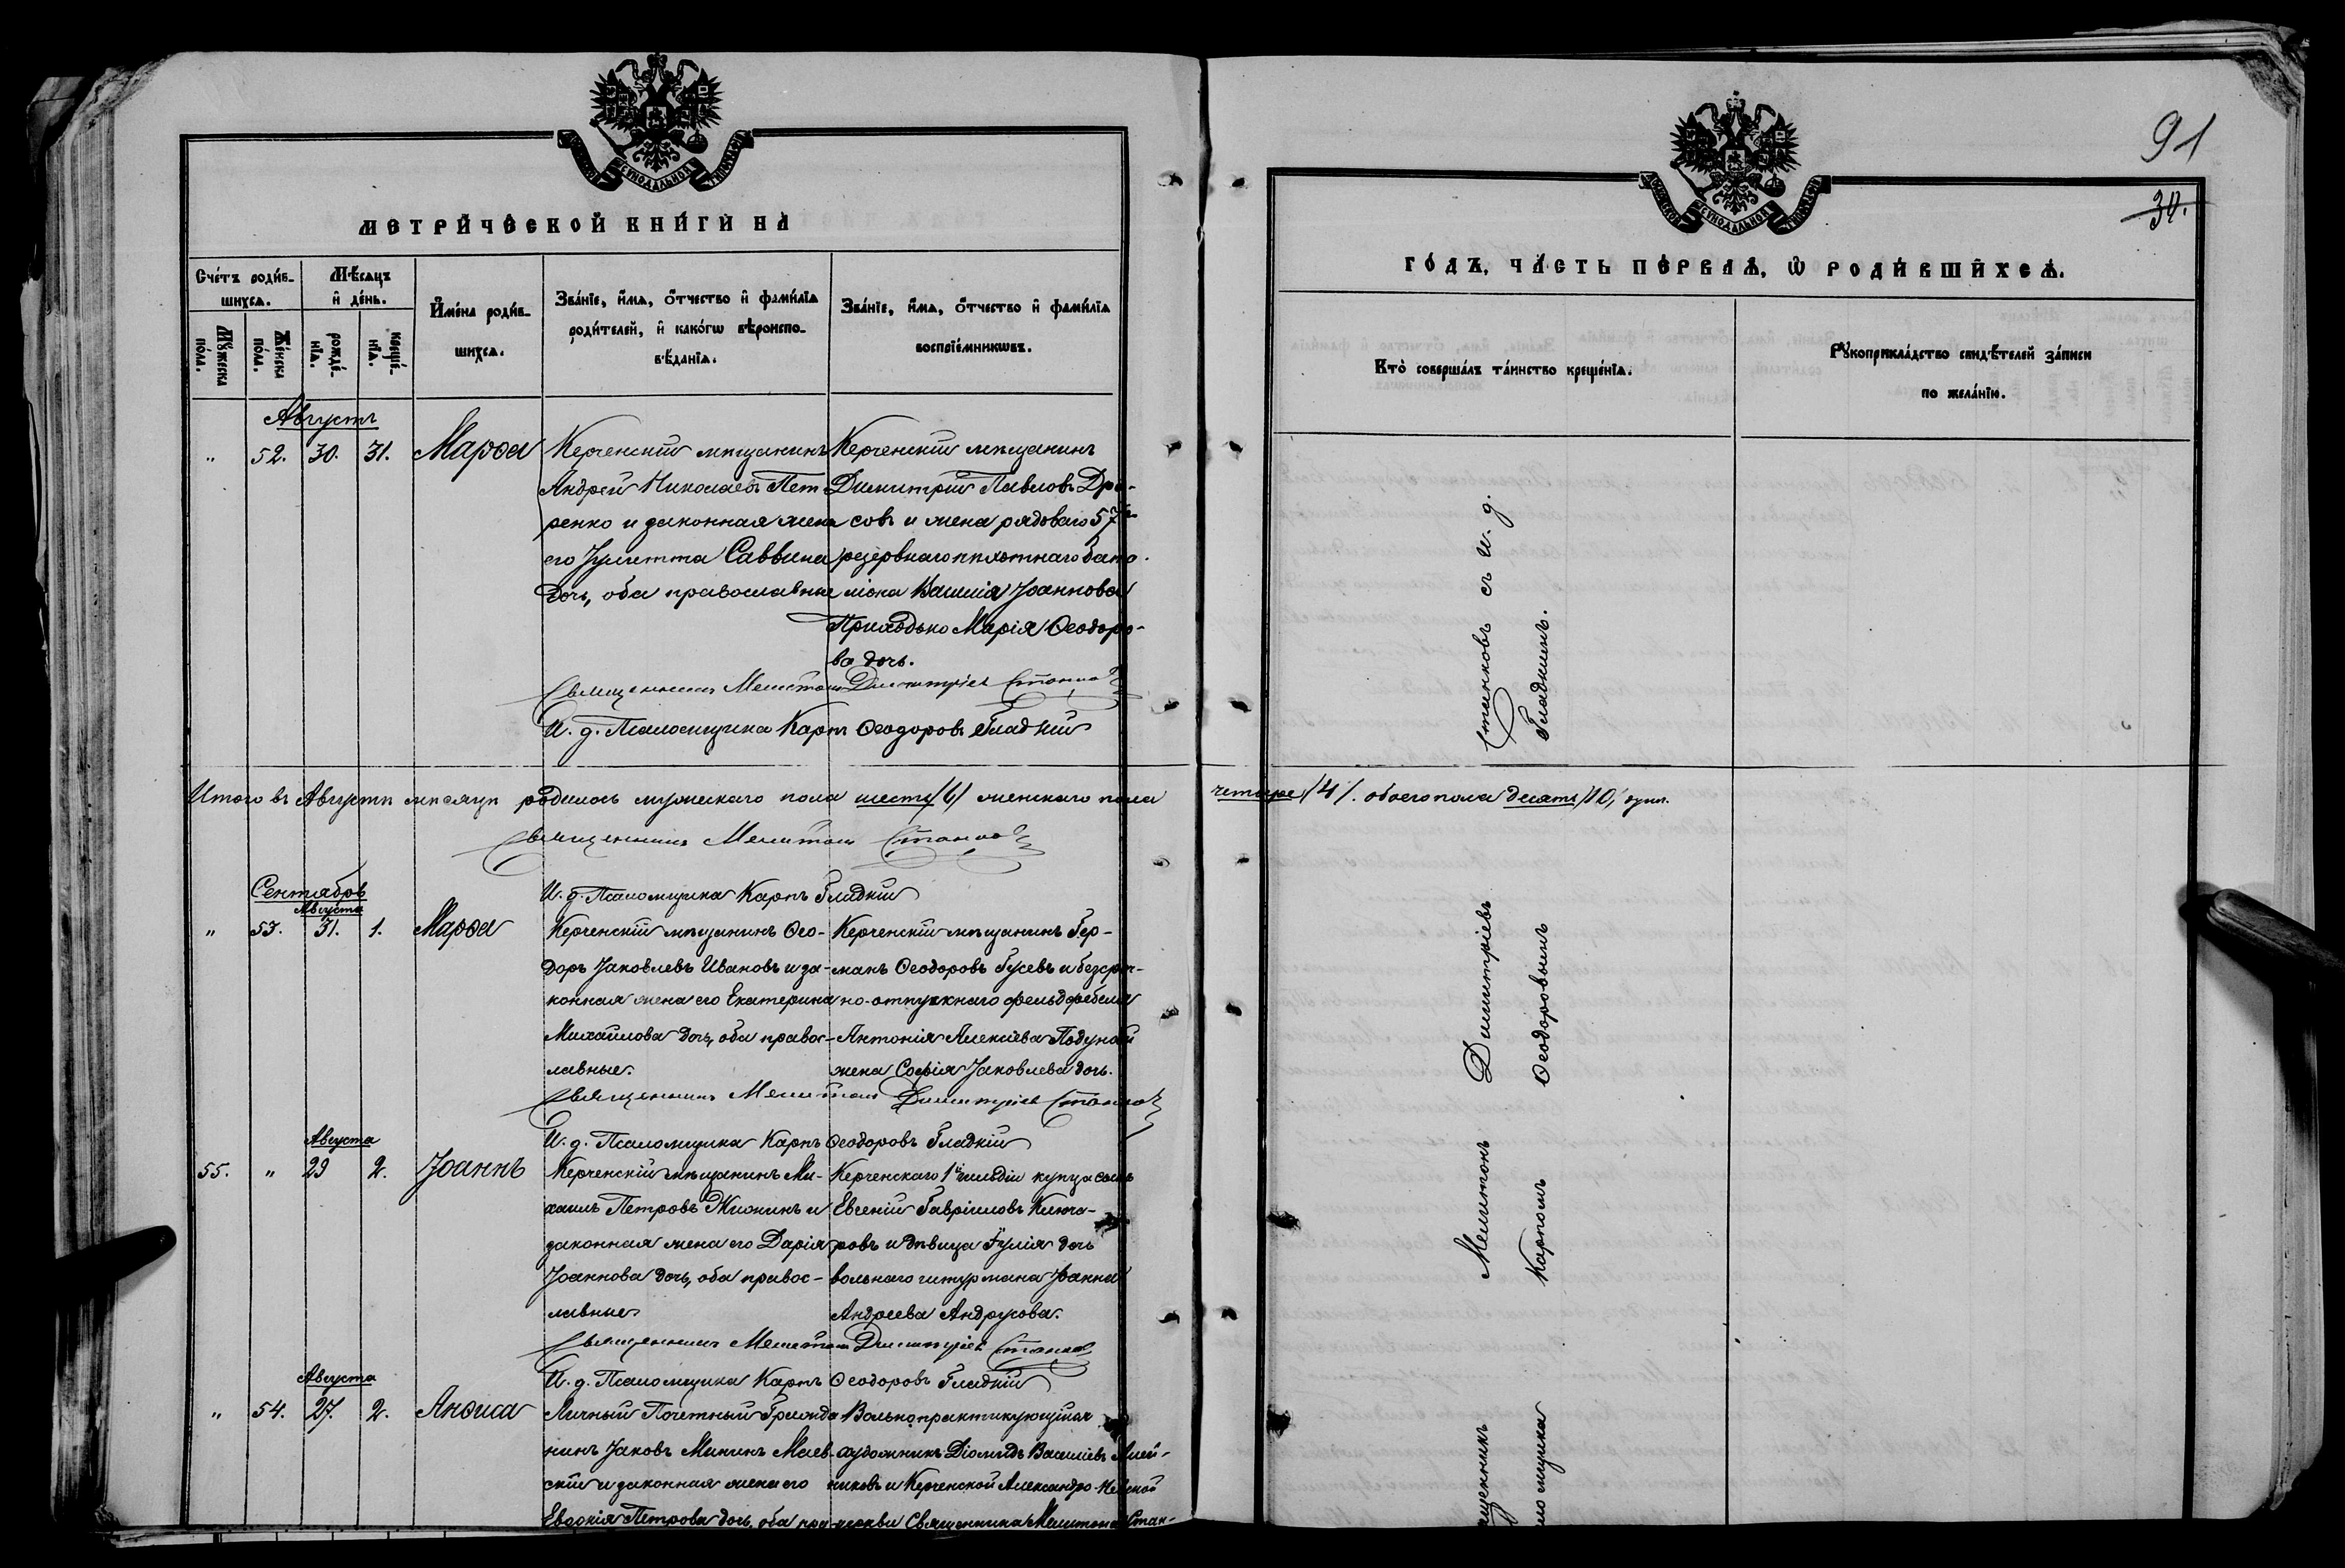 МЕТРИЧЕСКОЙ КНИГИ НА
Счетъ родив-
шихся.
Мѣсяцъ
и день.
Мужеска
пола.
Женска
пола.
рожде-
нія.
креще-
нія.
Имена родив-
шихся.
Званіе, имя, отчество и фамилія
родителей, и какогѡ вѣроиспо-
вѣданія.
Званіе, имя, отчество и фамилія
воспріемниковъ.
Августъ
" 52. 30. 31. Марѳа
Керченскій мѣщанинъ
Андрей Николаевъ Пет
ренко и законная жена
его Іулитта Саввина
дочь, оба православные
Керченскій мѣщанинъ
Димитрій Павловъ Дра-
совъ и жена рядоваго 57го
резервнаго пѣхотнаго бата-
ліона Василія Іоаннова
Приходько Марія Ѳеодоро-
ва дочь.
Священникъ Мелитонъ Димитріевъ Станковъ
И. д. Псаломщика Карпъ Ѳеодоровъ Гладкій
Итого въ Августѣ мѣсяцѣ родилось мужескаго пола шесть /6/ женскаго пола четыре /4/. обоего пола десять /10/ душъ.
Священникъ Мелитонъ Станковъ
И. д. Псаломщика Карпъ Гладкій
Сентябрь
Августа
" 53. 31. 1. Марѳа
Керченскій мѣщанинъ Ѳео-
доръ Іаковлевъ Ивановъ и за-
конная жена его Екатерина
Михайлова дочь, оба правос-
лавные.
Керченскій мѣщанинъ Гер-
манъ Ѳеодоровъ Гусевъ и безсроч-
но-отпускнаго фельдфебеля
Антонія Алексѣева Подунай
жена Софія Іаковлева дочь.
Священникъ Мелитонъ Димитріевъ Станковъ
И. д. Псаломщика Карпъ Ѳеодоровъ Гладкій
Августа
55. " 29 2. Іоаннъ
Керченскій мѣщанинъ Ми-
хаилъ Петровъ Жионинъ и
законная жена его Дарія
Іоаннова дочь, оба правос-
лавные
Керченскаго 1й гильдіи купца сынъ
Евгеній Гавріиловъ Ключа-
ровъ и дѣвица Іулія дочь
вольнаго штурмана Іоанна
Андреева Андрусова.
Священникъ Мелитонъ Димитріевъ Станковъ
И. д. Псаломщика Карпъ Ѳеодоровъ Гладкій
Августа
" 54. 27. 2. Анѳиса
Личный Почетный Гражда
нинъ Іаковъ Мининъ Маев-
скій и законная жена его
Евдокія Петрова дочь, оба пра
Вольнопрактикующій
художникъ Діомидъ Василіевъ Алей-
никовъ и Керченской Александро-Невской
церкви Священника Мелитона Стан-
91
30.
ГОДЪ, ЧАСТЬ ПЕРВАЯ, Ѡ РОДИВШИХСЯ.
Кто совершалъ таинство крещенія.
Рукоприкладство свидѣтелей записи
по желанію.
Священникъ Мелитонъ Димитріевъ Станковъ съ и. д.
Псаломщика Карпомъ Ѳеодоровымъ Гладкимъ.